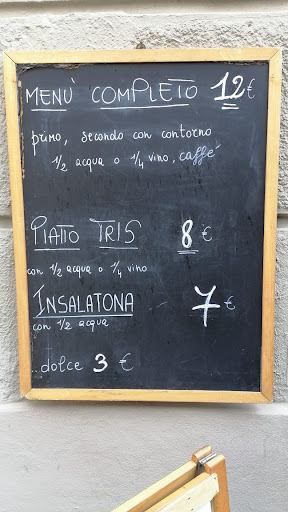 MENÙ COMPLETO 12€
primo, secondo con contorno
1/2 acqua o 1/4 vino, caffé
PIATTO TRIS 8 €
con 1/2 acqua o 1/4 vino
INSALATONA 7 €
con 1/2 acqua
..dolce 3 €